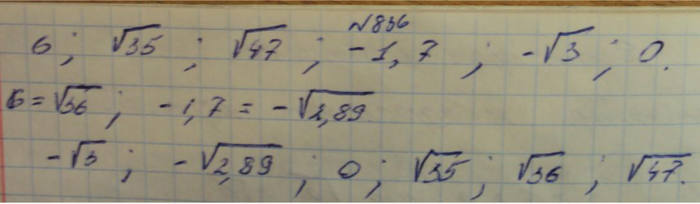 №836
6; √35; √47; -1,7; -√3; 0.
6=√36; -1,7 = -√2,89
-√3; -√2,89; 0; √35; √36; √47.